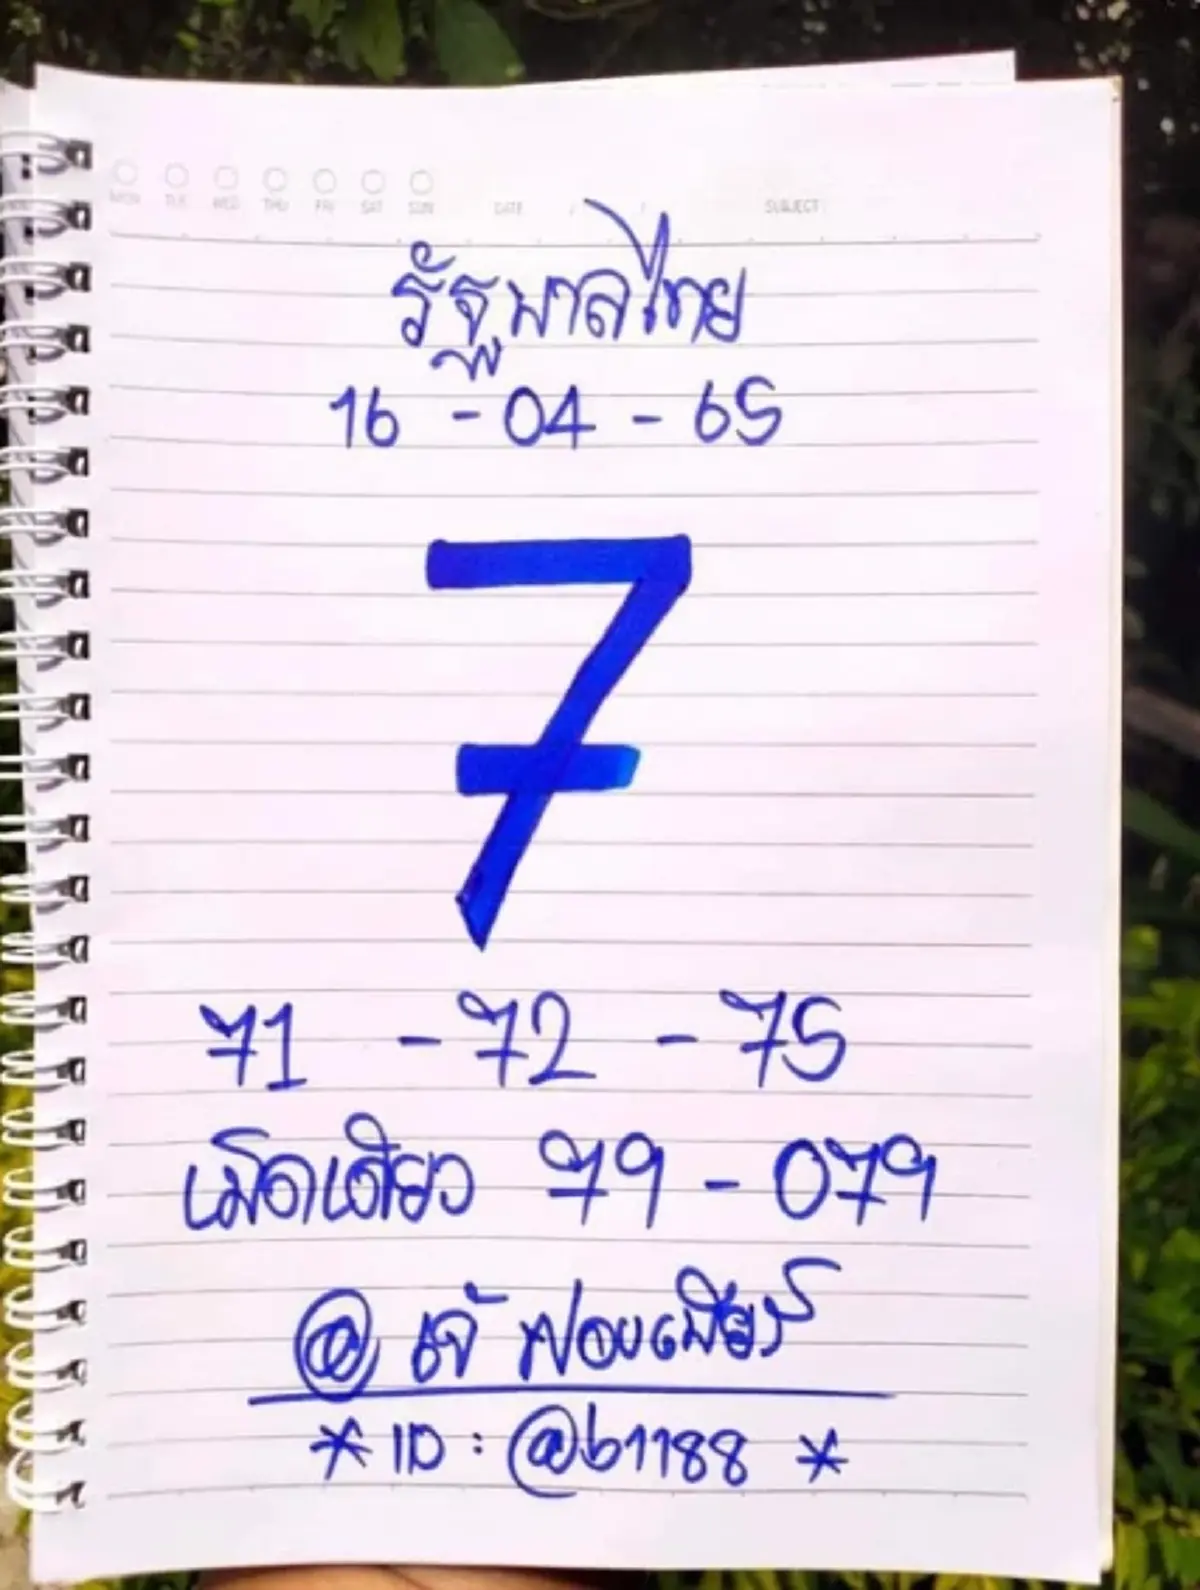 MON TUE WED THU FRI SAT SUN DATE / / SUBJECT
รัฐบาลไทย
16 - 04 - 65
7
71 - 72 - 75
เม็ดเดียว 79 - 079
@ เจ๊ ฟองเบียร์
* ID : @b1188 *